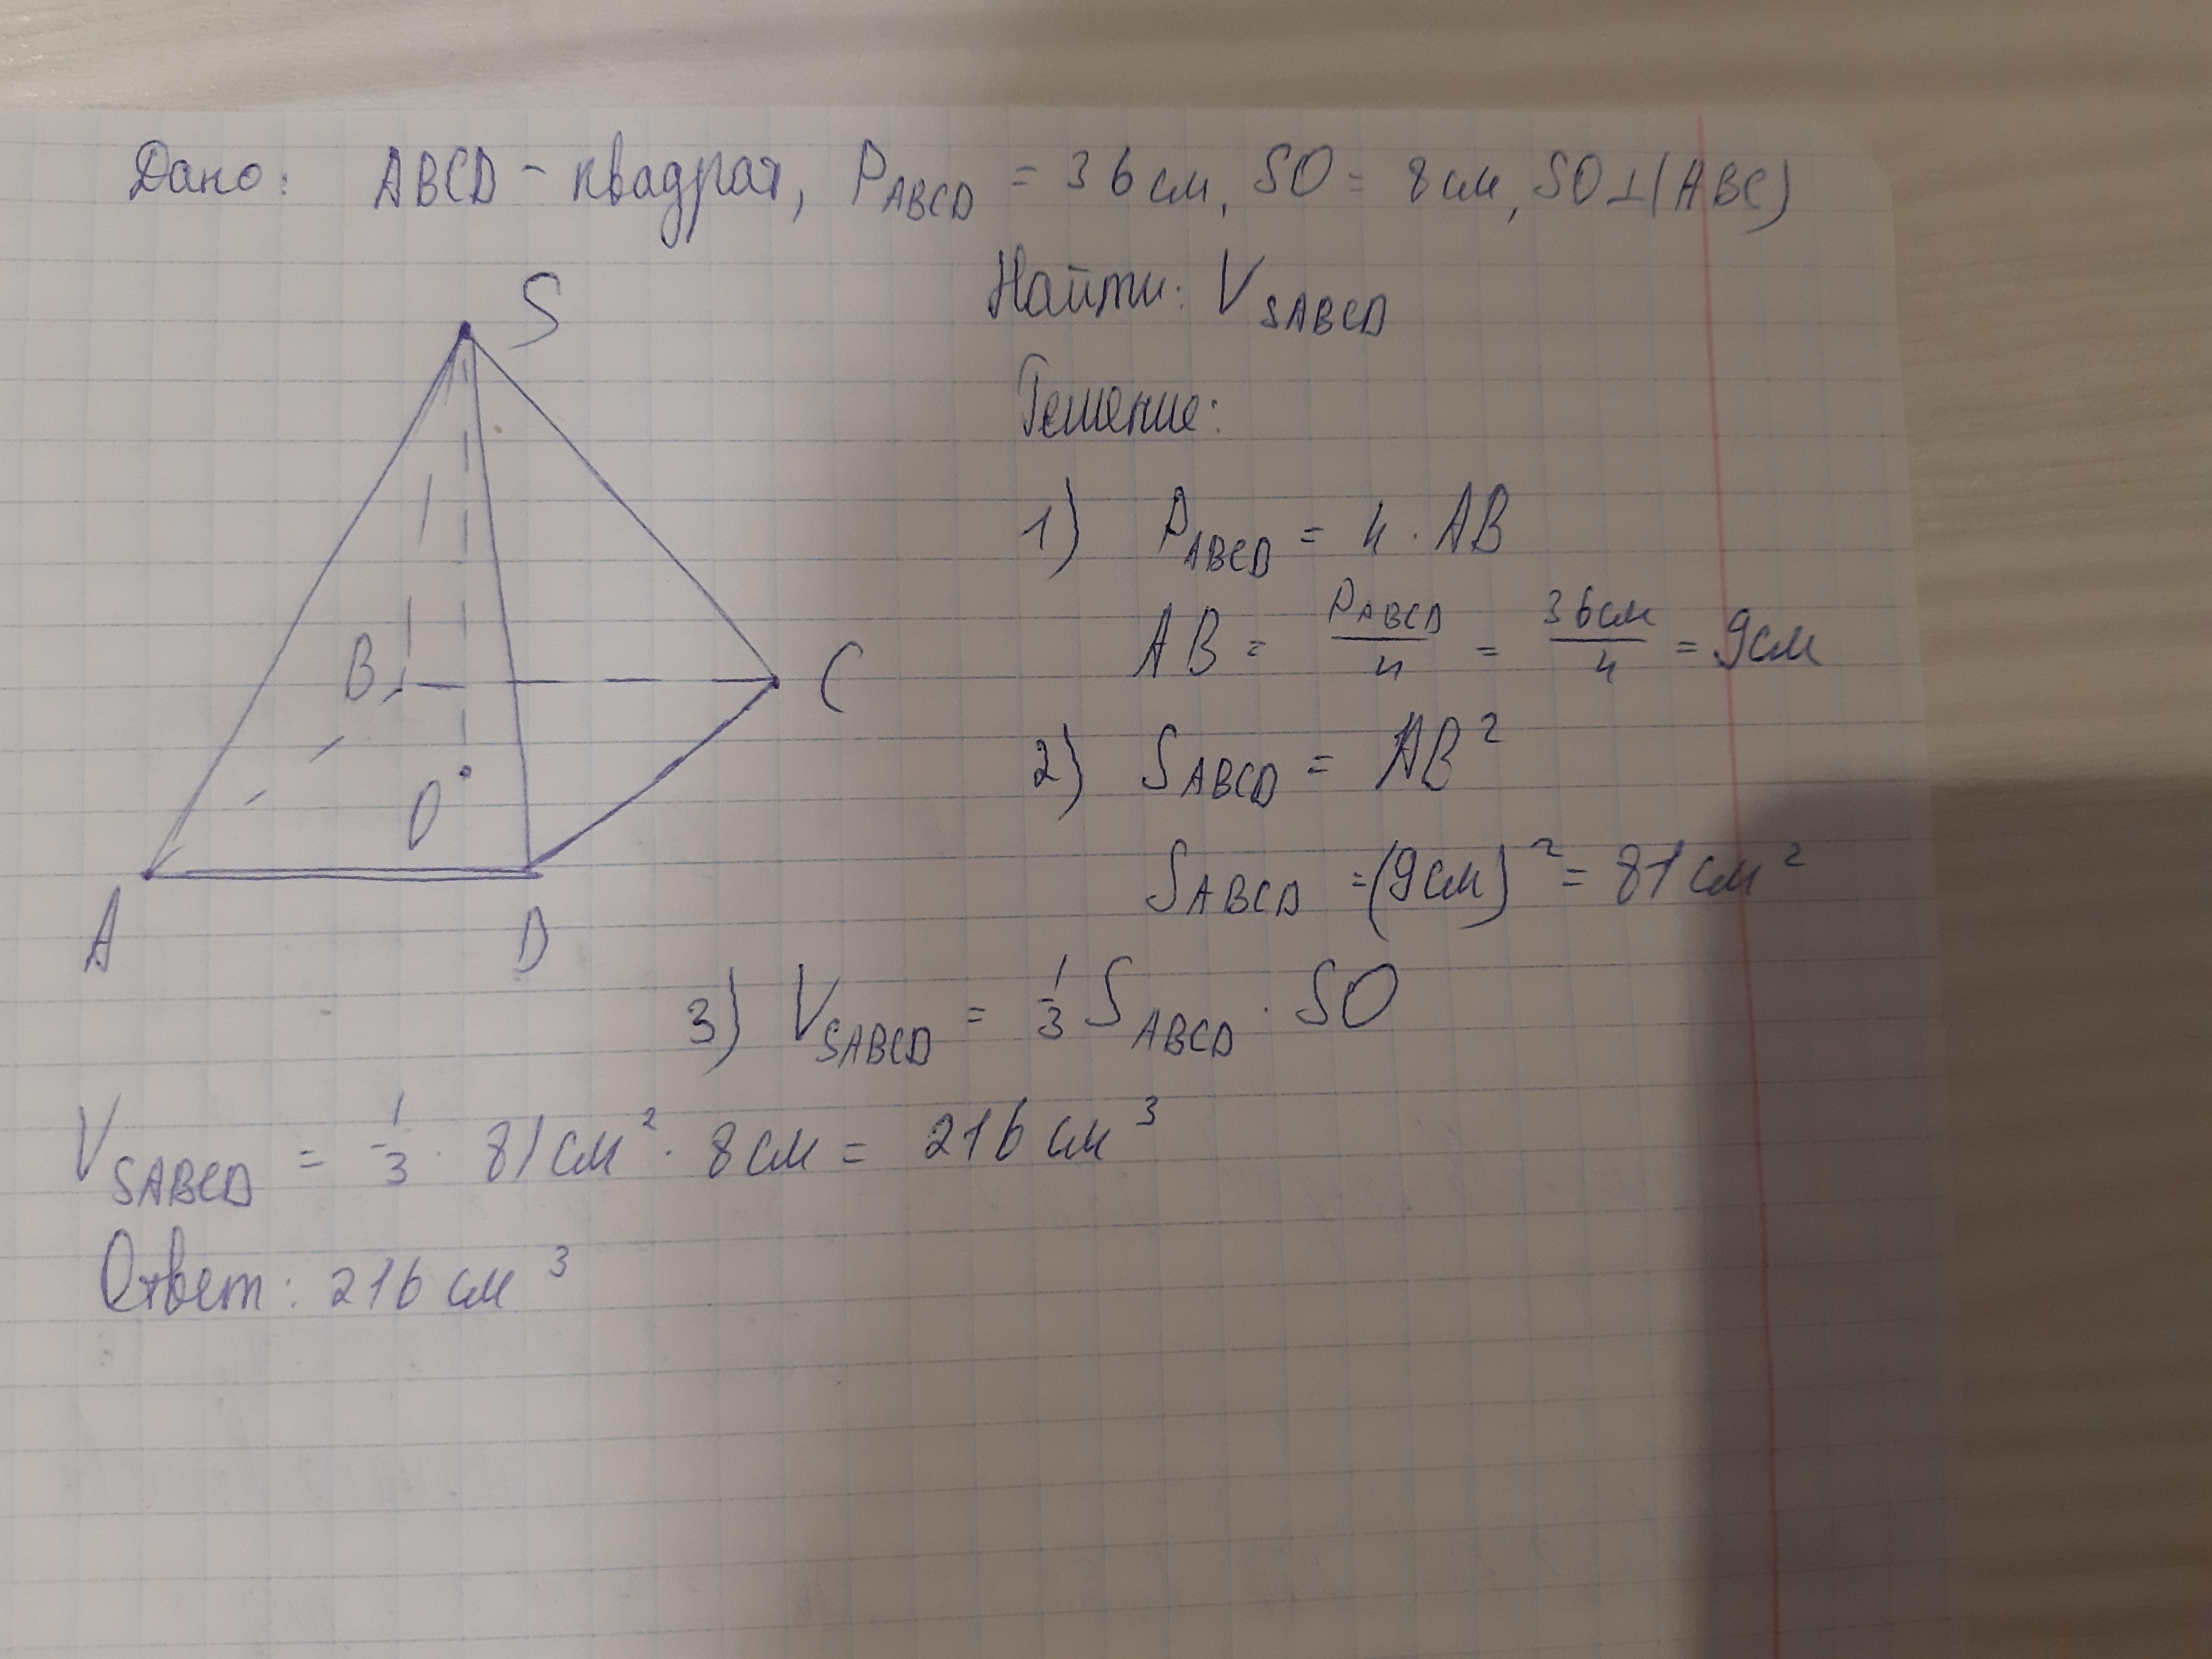 Дано: ABCD - квадрат, P_ABCD = 36 см, SO = 8 см, SO⊥(ABC)
Найти: V_SABCD
Решение:
S
B
C
O
A
D
1) P_ABCD = 4 · AB
AB = P_ABCD/4 = 36см/4 = 9см
2) S_ABCD = AB²
S_ABCD = (9см)² = 81 см²
3) V_SABCD = 1/3 S_ABCD · SO
V_SABCD = 1/3 · 81 см² · 8 см = 216 см³
Ответ: 216 см³